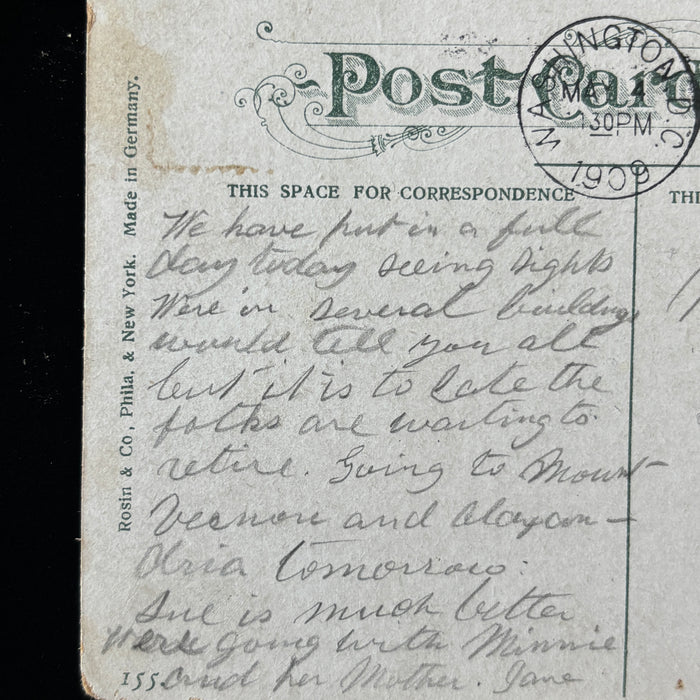 Post Card
WASHINGTON, D.C.
MAY 4
130 PM
1909
THIS SPACE FOR CORRESPONDENCE
THI
Rosin & Co., Phila. & New York. Made in Germany.
We have put in a full
day today seeing sights
Were in several buildings
would tell you all
but it is to late the
folks are waiting to
retire. Going to Mount
Vernon and Alaxan-
dria tomorrow.
Sue is much better
Were going with Minnie
and her Mother. Jane
155